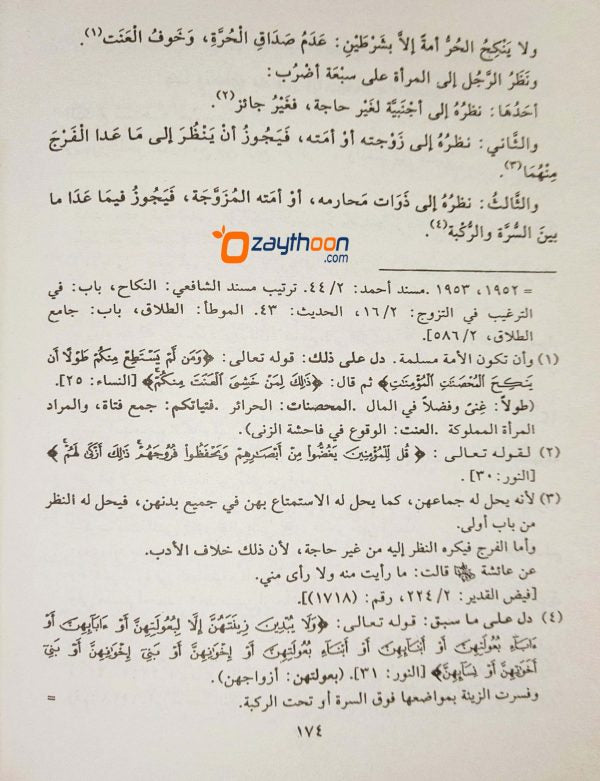 ولا يَنْكِحُ الحُرُّ أمةً إلاَّ بشَرْطَيْنِ: عَدَمُ صَدَاقِ الْحُرَّةِ، وَخَوفُ الْعَنَت(١).
ونَظَرُ الرَّجُلِ إلى المرأة على سبْعَة أضْرُب:
أحَدُهَا: نظرُهُ إلى أجْنَبيَّة لغَيْر حاجة، فغَيْرُ جائز(٢).
والثَّاني: نظرُهُ إلى زَوْجته أوْ أمَته، فَيَجُوزُ أنْ يَنْظُرَ إلى مَا عَدا الْفَرْجَ
مِنْهُمَا(٣).
والثَّالثُ: نظرُهُ إلى ذَوَات مَحارمه، أوْ أمَته المُزوَّجَة، فَيَجُوزُ فيمَا عَدَا ما
بينَ السُّرَّة والرُّكْبة(٤).
zaythoon
.com
= ١٩٥٢، ١٩٥٣ .مسند أحمد: ٤٤/٢. ترتيب مسند الشافعي: النكاح، باب: في
الترغيب في التزوج: ١٦/٢، الحديث: ٤٣. الموطأ: الطلاق، باب: جامع
الطلاق، ٥٨٦/٢].
(١) وأن تكون الأمة مسلمة. دل على ذلك: قوله تعالى: ﴿وَمَن لَّمْ يَسْتَطِعْ مِنكُمْ طَوْلًا أَن
يَنكِحَ الْمُحْصَنَٰتِ الْمُؤْمِنَٰتِ﴾ ثم قال: ﴿ذَٰلِكَ لِمَنْ خَشِىَ الْعَنَتَ مِنكُمْ﴾ [النساء: ٢٥].
(طولاً: غنىً وفضلاً في المال .المحصنات: الحرائر .فتياتكم: جمع فتاة، والمراد
المرأة المملوكة .العنت: الوقوع في فاحشة الزنى).
(٢) لقوله تعالى : ﴿ قُل لِّلْمُؤْمِنِينَ يَغُضُّوا مِنْ أَبْصَٰرِهِمْ وَيَحْفَظُوا فُرُوجَهُمْ ذَٰلِكَ أَزْكَىٰ لَهُمْ ﴾
[النور: ٣٠] .
(٣) لأنه يحل له جماعهن، كما يحل له الاستمتاع بهن في جميع بدنهن، فيحل له النظر
من باب أولى.
وأما الفرج فيكره النظر إليه من غير حاجة، لأن ذلك خلاف الأدب.
عن عائشة رضي الله عنها قالت: ما رأيت منه ولا رأى مني.
[فيض القدير: ٢٢٤/٢، رقم: (١٧١٨)].
(٤) دل على ما سبق: قوله تعالى: ﴿وَلَا يُبْدِينَ زِينَتَهُنَّ إِلَّا لِبُعُولَتِهِنَّ أَوْ ءَابَآئِهِنَّ أَوْ
ءَابَآءِ بُعُولَتِهِنَّ أَوْ أَبْنَآئِهِنَّ أَوْ أَبْنَآءِ بُعُولَتِهِنَّ أَوْ إِخْوَٰنِهِنَّ أَوْ بَنِىٓ إِخْوَٰنِهِنَّ أَوْ بَنِىٓ
أَخَوَٰتِهِنَّ أَوْ نِسَآئِهِنَّ﴾ [النور: ٣١]. (بعولتهن: أزواجهن).
وفسرت الزينة بمواضعها فوق السرة أو تحت الركبة. =
١٧٤